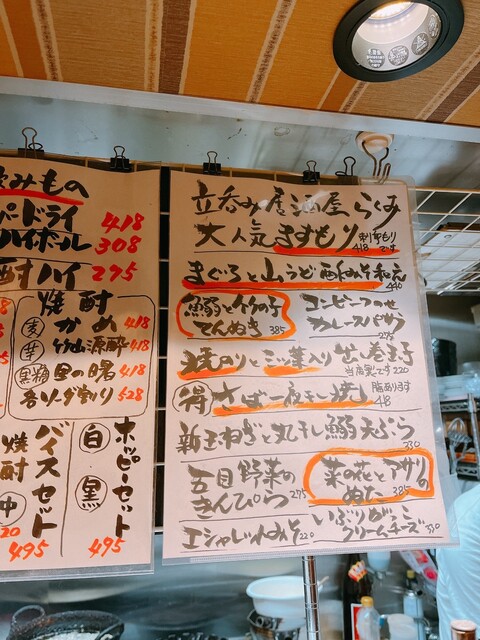 飲みもの
ドライ 418
ハイボール 308
酎ハイ 275
焼酎
麦 かめ 418
芋 竹山源酔 418
黒糖 里の曙 418
各ソーダ割り 528
ホッピーセット
白
黒
495
バイスセット
焼酎
中
495
立呑み居酒屋 らくみ
大人気 ますもり 418
まぐろと山うど酢みそ和え 440
鰯と竹の子
てんぬき 385
コンビーフのせ
カレースパサラ 275
焼のりと三ッ葉入り出し巻玉子
当店製です 220
得 さば一夜干し焼き 418
脂あります
新玉ねぎと丸干し鰯天ぷら 330
五目野菜の
きんぴら 275
菜の花とアサリの
ぬた 385
エシャレットみそ 220
いぶりがっこ
クリームチーズ 330